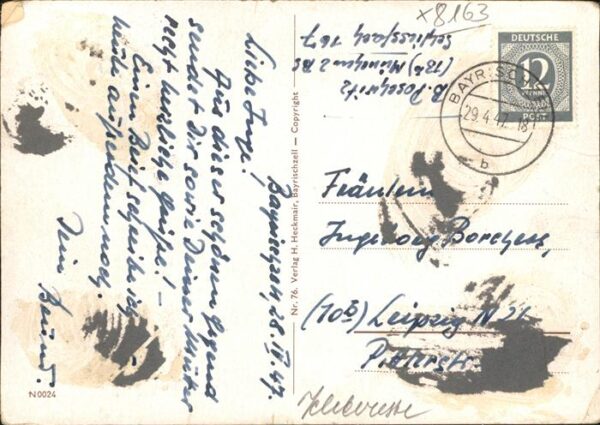 Bayrischzell, 28.IV.47.
Liebe Inge!
Aus dieser schönen Gegend
sendet Dir sowie Deiner Mutter
recht herzliche Grüße! –
Einen Brief schreibe ich
heute außerdem noch.
Dein Bernd.
N 0024
Nr. 76. Verlag H. Heckmair, Bayrischzell — Copyright
x8163
B.
(13b) München 2 BS
Schliessfach 167
DEUTSCHE
12
PFENNIG
POST
BAYR
29.4.47
b
Fräulein
Ingeborg Borchers,
(10b) Leipzig N 21
Klebereste